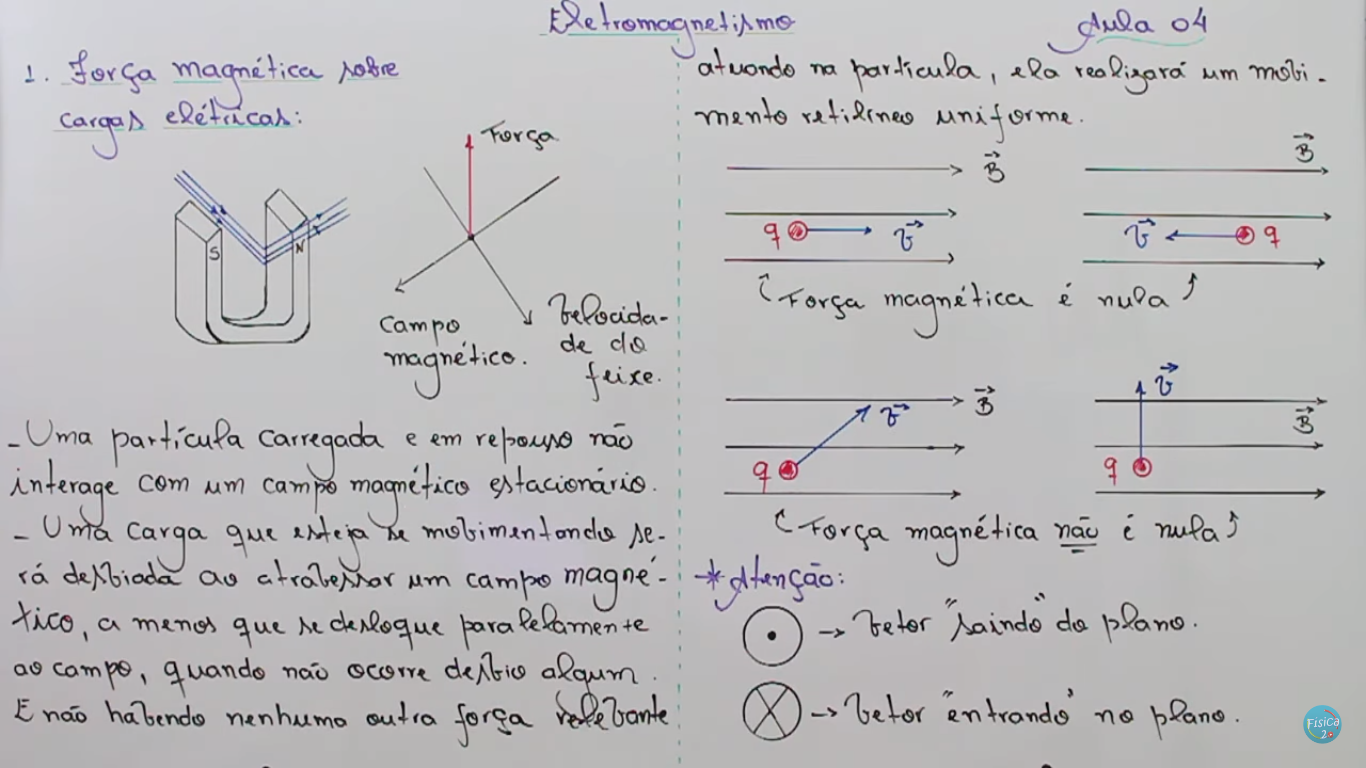 Eletromagnetismo
Aula 04
1. Força magnética sobre
cargas elétricas:
Força
S
N
Campo
magnético.
Velocida-
de do
feixe.
- Uma partícula carregada e em repouso não
interage com um campo magnético estacionário.
- Uma carga que esteja se movimentando se-
rá desviada ao atravessar um campo magné-
tico, a menos que se desloque paralelamente
ao campo, quando não ocorre desvio algum.
E não havendo nenhuma outra força relevante
atuando na partícula, ela realizará um movi-
mento retilíneo uniforme.
B
B
q
v
v
q
Força magnética é nula
B
v
q
v
B
q
Força magnética não é nula
* Atenção:
→ Vetor "saindo" do plano.
→ Vetor "entrando" no plano.
Física
2.0